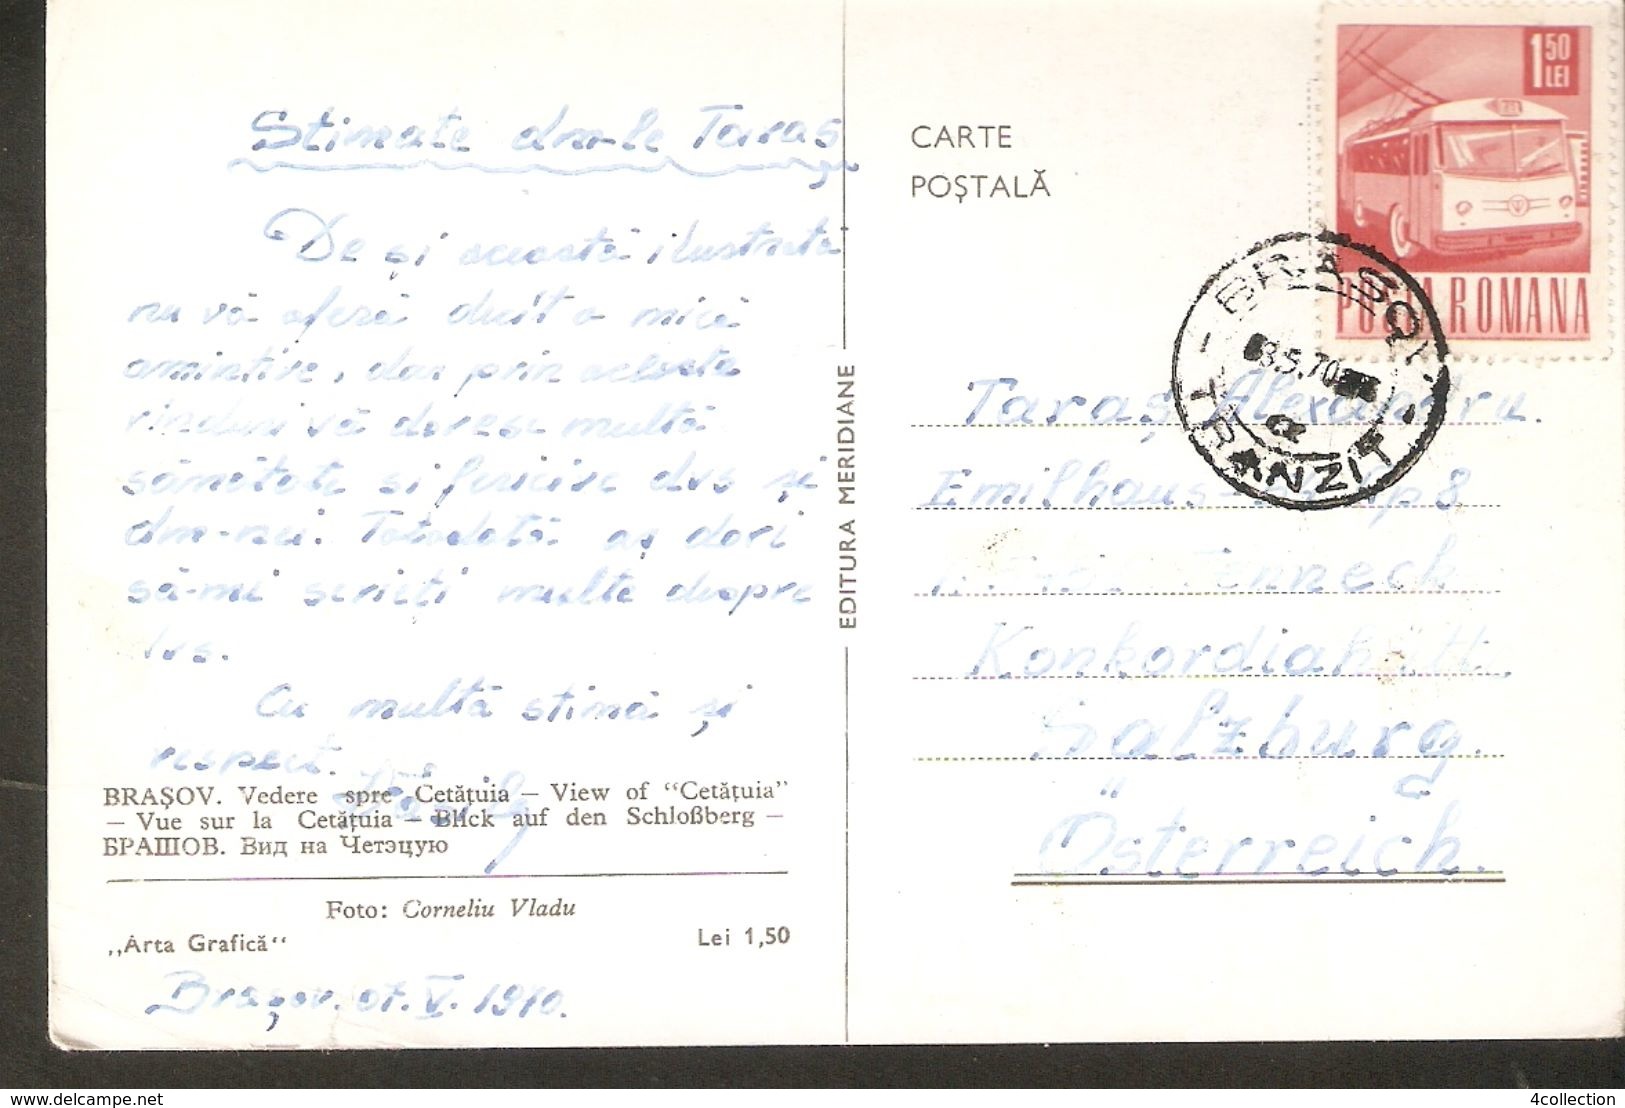 Stimate dm-le Taraș
De și această ilustrată
nu vă oferă decît o mică
amintire, dar prin aceste
rînduri vă doresc multă
sănătate si fericire dvs și
dm-nei. Totodată aș dori
să-mi scrieți multe despre
dvs.
Cu multă stimă și
respect.
BRAȘOV. Vedere spre Cetățuia – View of "Cetățuia"
– Vue sur la Cetățuia – Blick auf den Schloßberg –
БРАШОВ. Вид на Четэцую
Foto: Corneliu Vladu
„Arta Grafică"
Lei 1,50
Brașov. 07. V. 1970.
EDITURA MERIDIANE
CARTE
POȘTALĂ
1 50
LEI
POȘTA ROMANA
BRAȘOV
8.5.70
TRANZIT
Taraș Alexandru.
Emilhaus Ap 8
Tenneck
Konkordiahütte
Salzburg.
Österreich.
www.delcampe.net
4collection